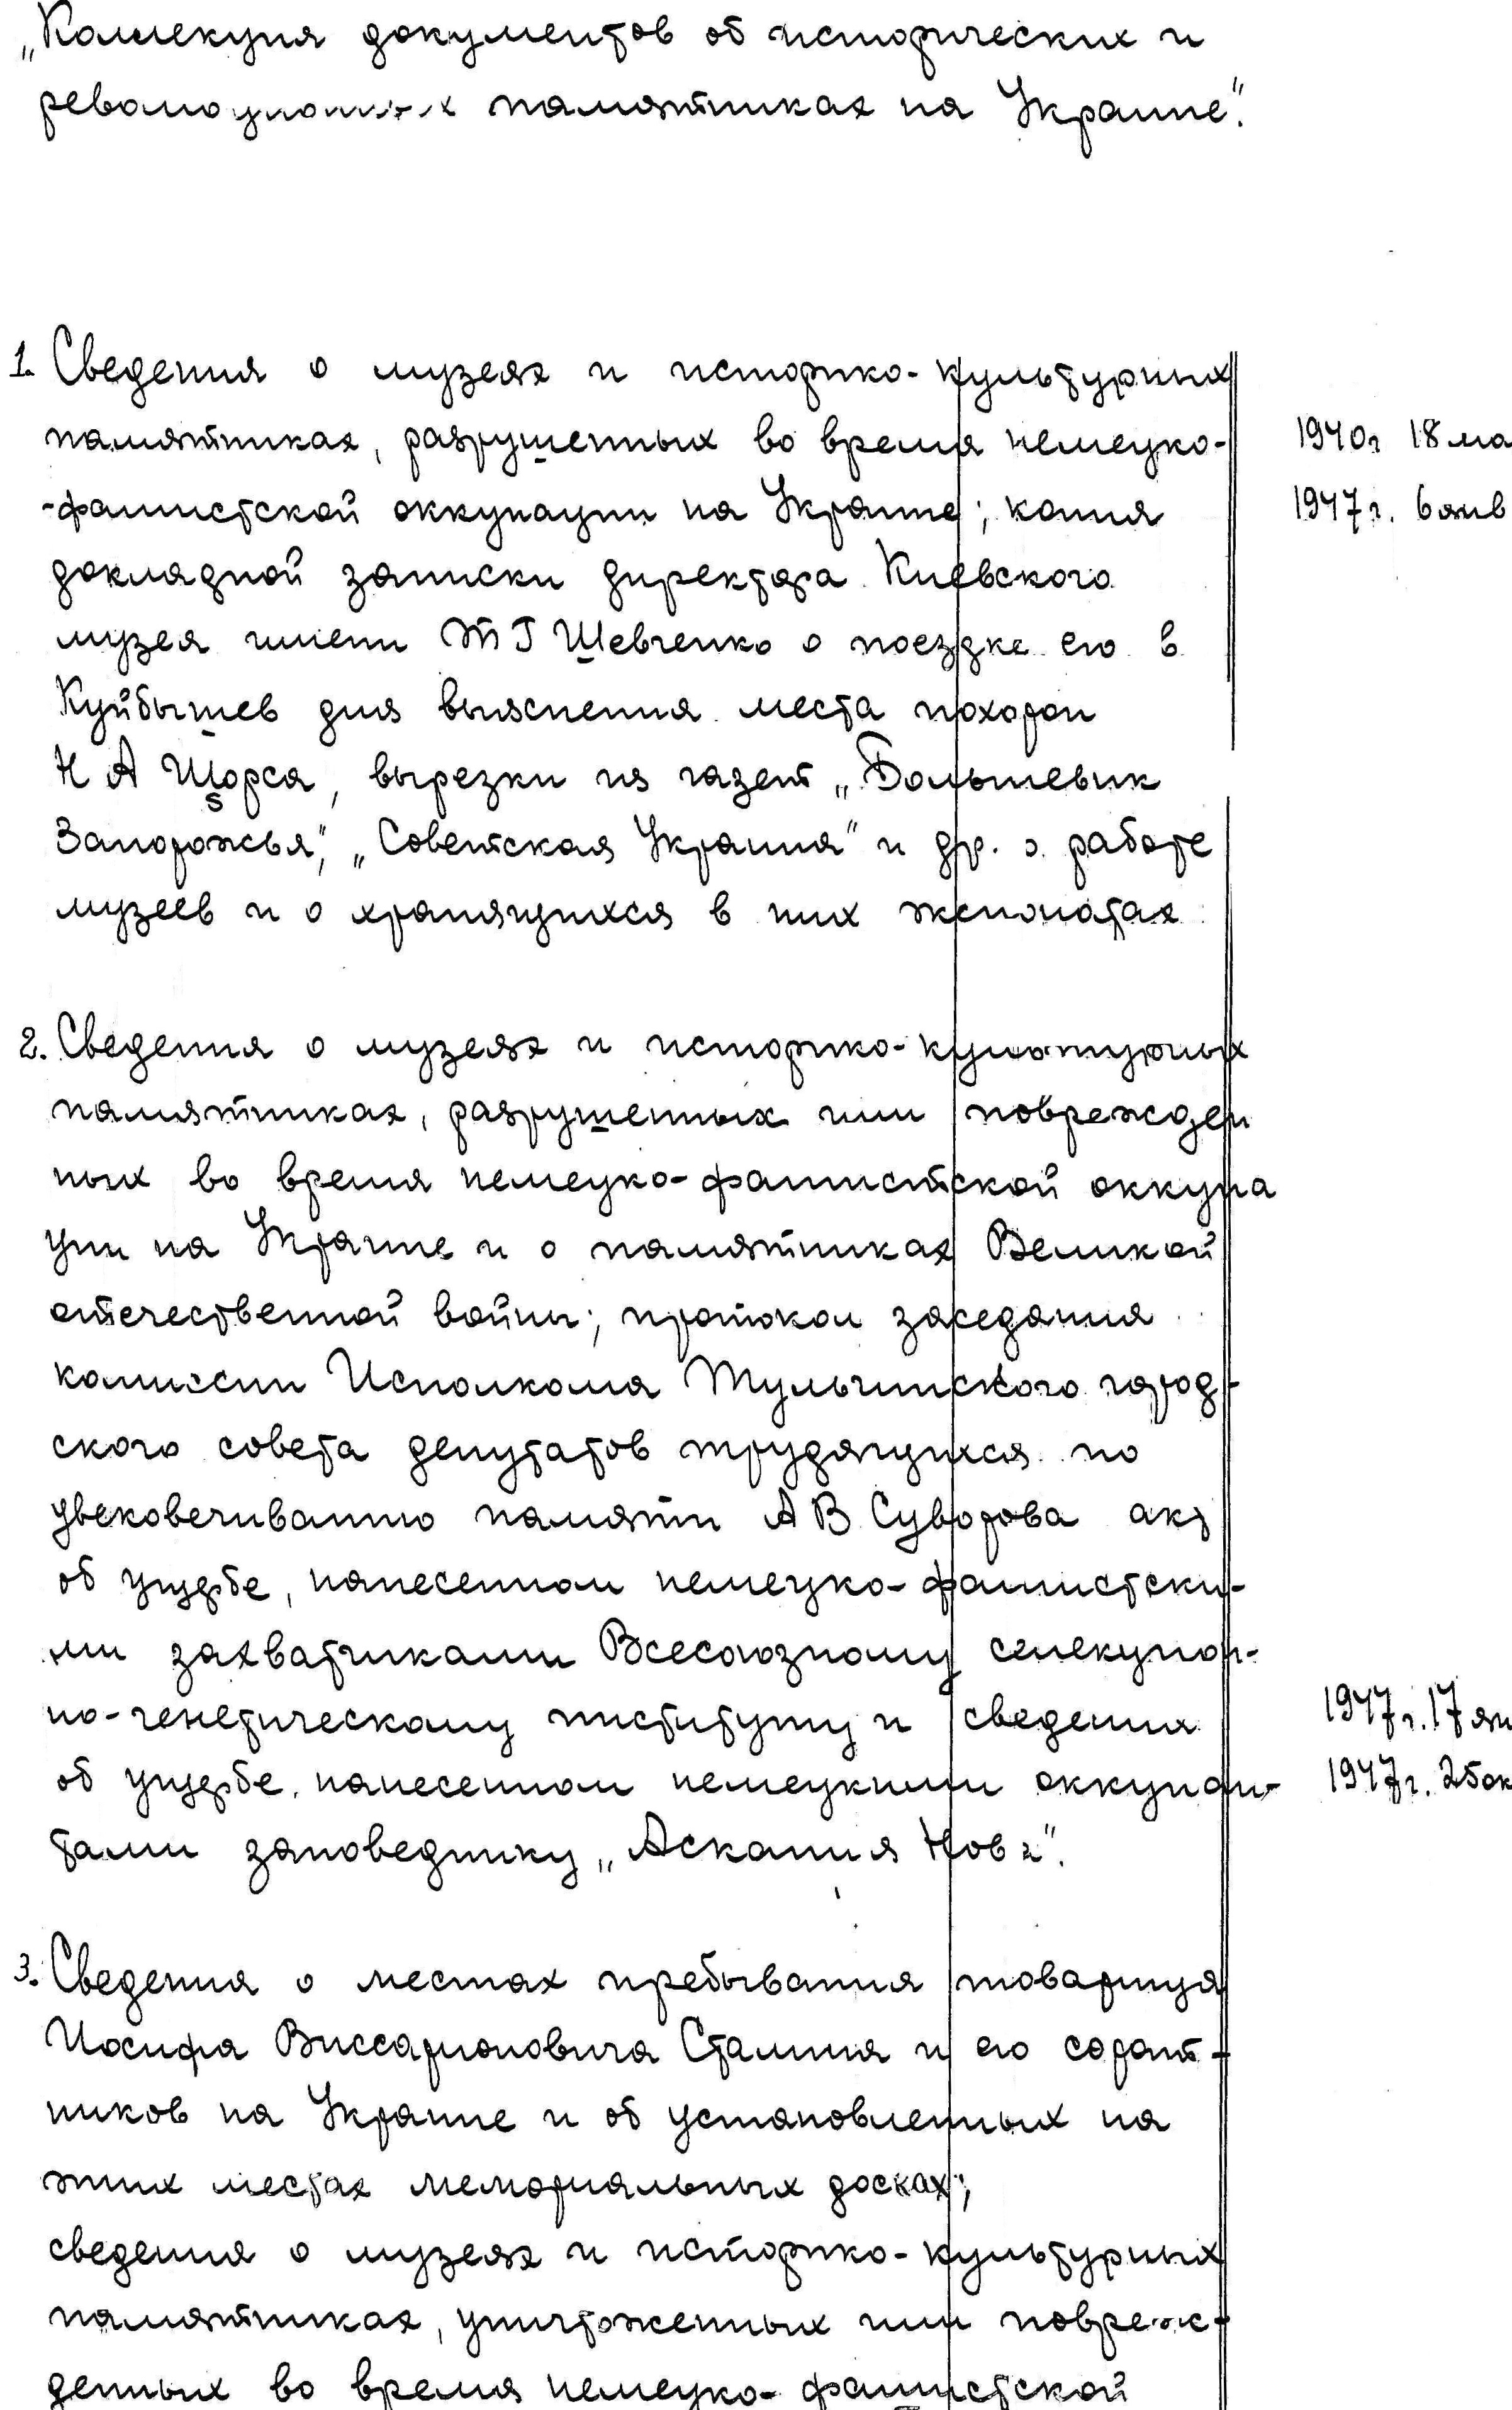 „Коллекция документов об исторических и
революционных памятниках на Украине".
1. Сведения о музеях и историко-культурных
памятниках, разрушенных во время немецко-
-фашистской оккупации на Украине; копия
1940г 18 ма
1947г. 6 янв
докладной записки директора Киевского
музея имени Т Г Шевченко о поездке его в
Куйбышев для выяснения места похорон
Н А Щорса, вырезки из газет „Большевик
Запорожья", „Советская Украина" и др. о работе
музеев и о хранящихся в них экспонатах
2. Сведения о музеях и историко-культурных
памятниках, разрушенных или поврежден
ных во время немецко-фашистской оккупа
ции на Украине и о памятниках Великой
отечественной войны; протокол заседания
комиссии Исполкома Тульчинского город-
ского совета депутатов трудящихся по
увековечиванию памяти А В Суворова акт
об ущербе, нанесенном немецко-фашистски-
ми захватчиками Всесоюзному селекцион-
но-генетическому институту и сведения
об ущербе, нанесенном немецкими оккупан-
тами заповеднику „Аскания Нова".
1947г. 17 ян
1947г. 25 ок
3. Сведения о местах пребывания товарища
Иосифа Виссарионовича Сталина и его сорат-
ников на Украине и об установленных на
этих местах мемориальных досках;
сведения о музеях и историко-культурных
памятниках, уничтоженных или повреж-
денных во время немецко-фашистской